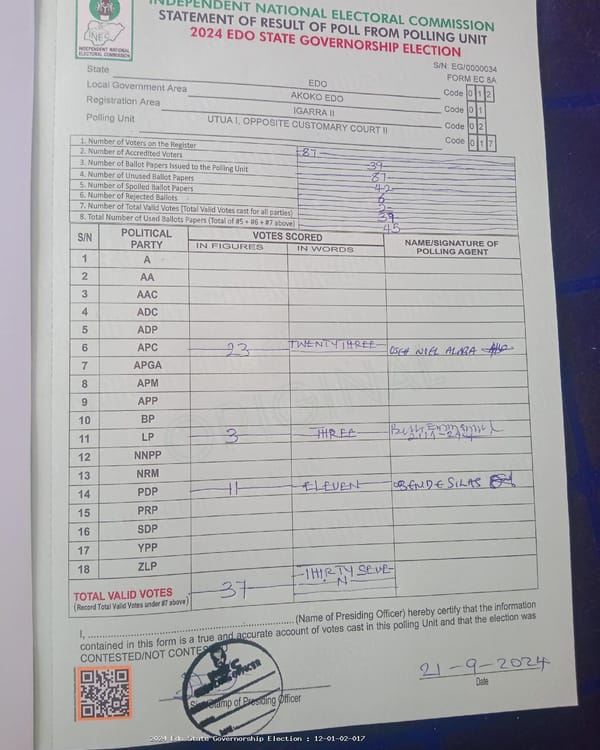 INDEPENDENT NATIONAL ELECTORAL COMMISSION
STATEMENT OF RESULT OF POLL FROM POLLING UNIT
2024 EDO STATE GOVERNORSHIP ELECTION
INEC
INDEPENDENT NATIONAL
ELECTORAL COMMISSION
S/N: EG/0000034
FORM EC 8A
State EDO Code 0 1 2
Local Government Area AKOKO EDO Code 0 1
Registration Area IGARRA II Code 0 2
Polling Unit UTUA I, OPPOSITE CUSTOMARY COURT II Code 0 1 7
1. Number of Voters on the Register 87
2. Number of Accredited Voters 39
3. Number of Ballot Papers Issued to the Polling Unit 87
4. Number of Unused Ballot Papers 42
5. Number of Spoiled Ballot Papers 6
6. Number of Rejected Ballots 2
7. Number of Total Valid Votes (Total Valid Votes cast for all parties) 39
8. Total Number of Used Ballots Papers (Total of #5 + #6 + #7 above) 45
S/N POLITICAL PARTY VOTES SCORED NAME/SIGNATURE OF POLLING AGENT
IN FIGURES IN WORDS
1 A
2 AA
3 AAC
4 ADC
5 ADP
6 APC 23 TWENTY THREE
7 APGA
8 APM
9 APP
10 BP
11 LP 3 THREE
12 NNPP
13 NRM
14 PDP 11 ELEVEN OBENDE SILAS
15 PRP
16 SDP
17 YPP
18 ZLP
TOTAL VALID VOTES 37 THIRTY SEVE-N
(Record Total Valid Votes under #7 above)
I, (Name of Presiding Officer) hereby certify that the information
contained in this form is a true and accurate account of votes cast in this polling Unit and that the election was
CONTESTED/NOT CONTES
21-9-2024
Date
Stamp of Presiding Officer
2024 Edo State Governorship Election : 12-01-02-017